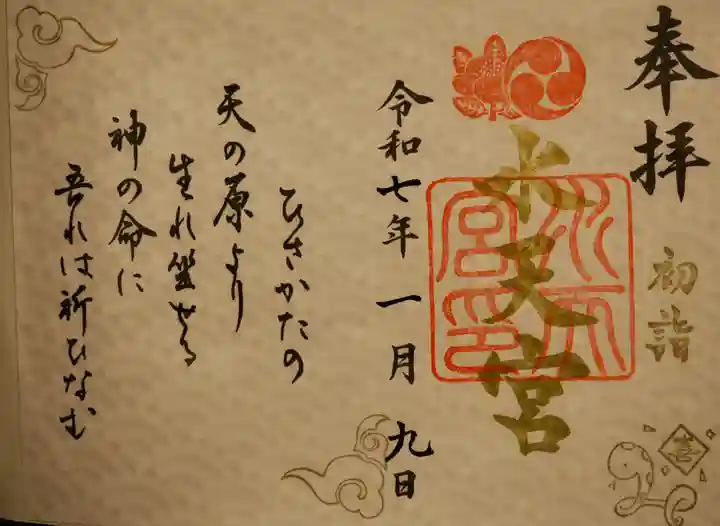 奉拝
初詣
喜
水天宮
水天宮印
令和七年一月九日
ひさかたの
天の原より
生れ坐せる
神の命に
吾れは祈ひなむ